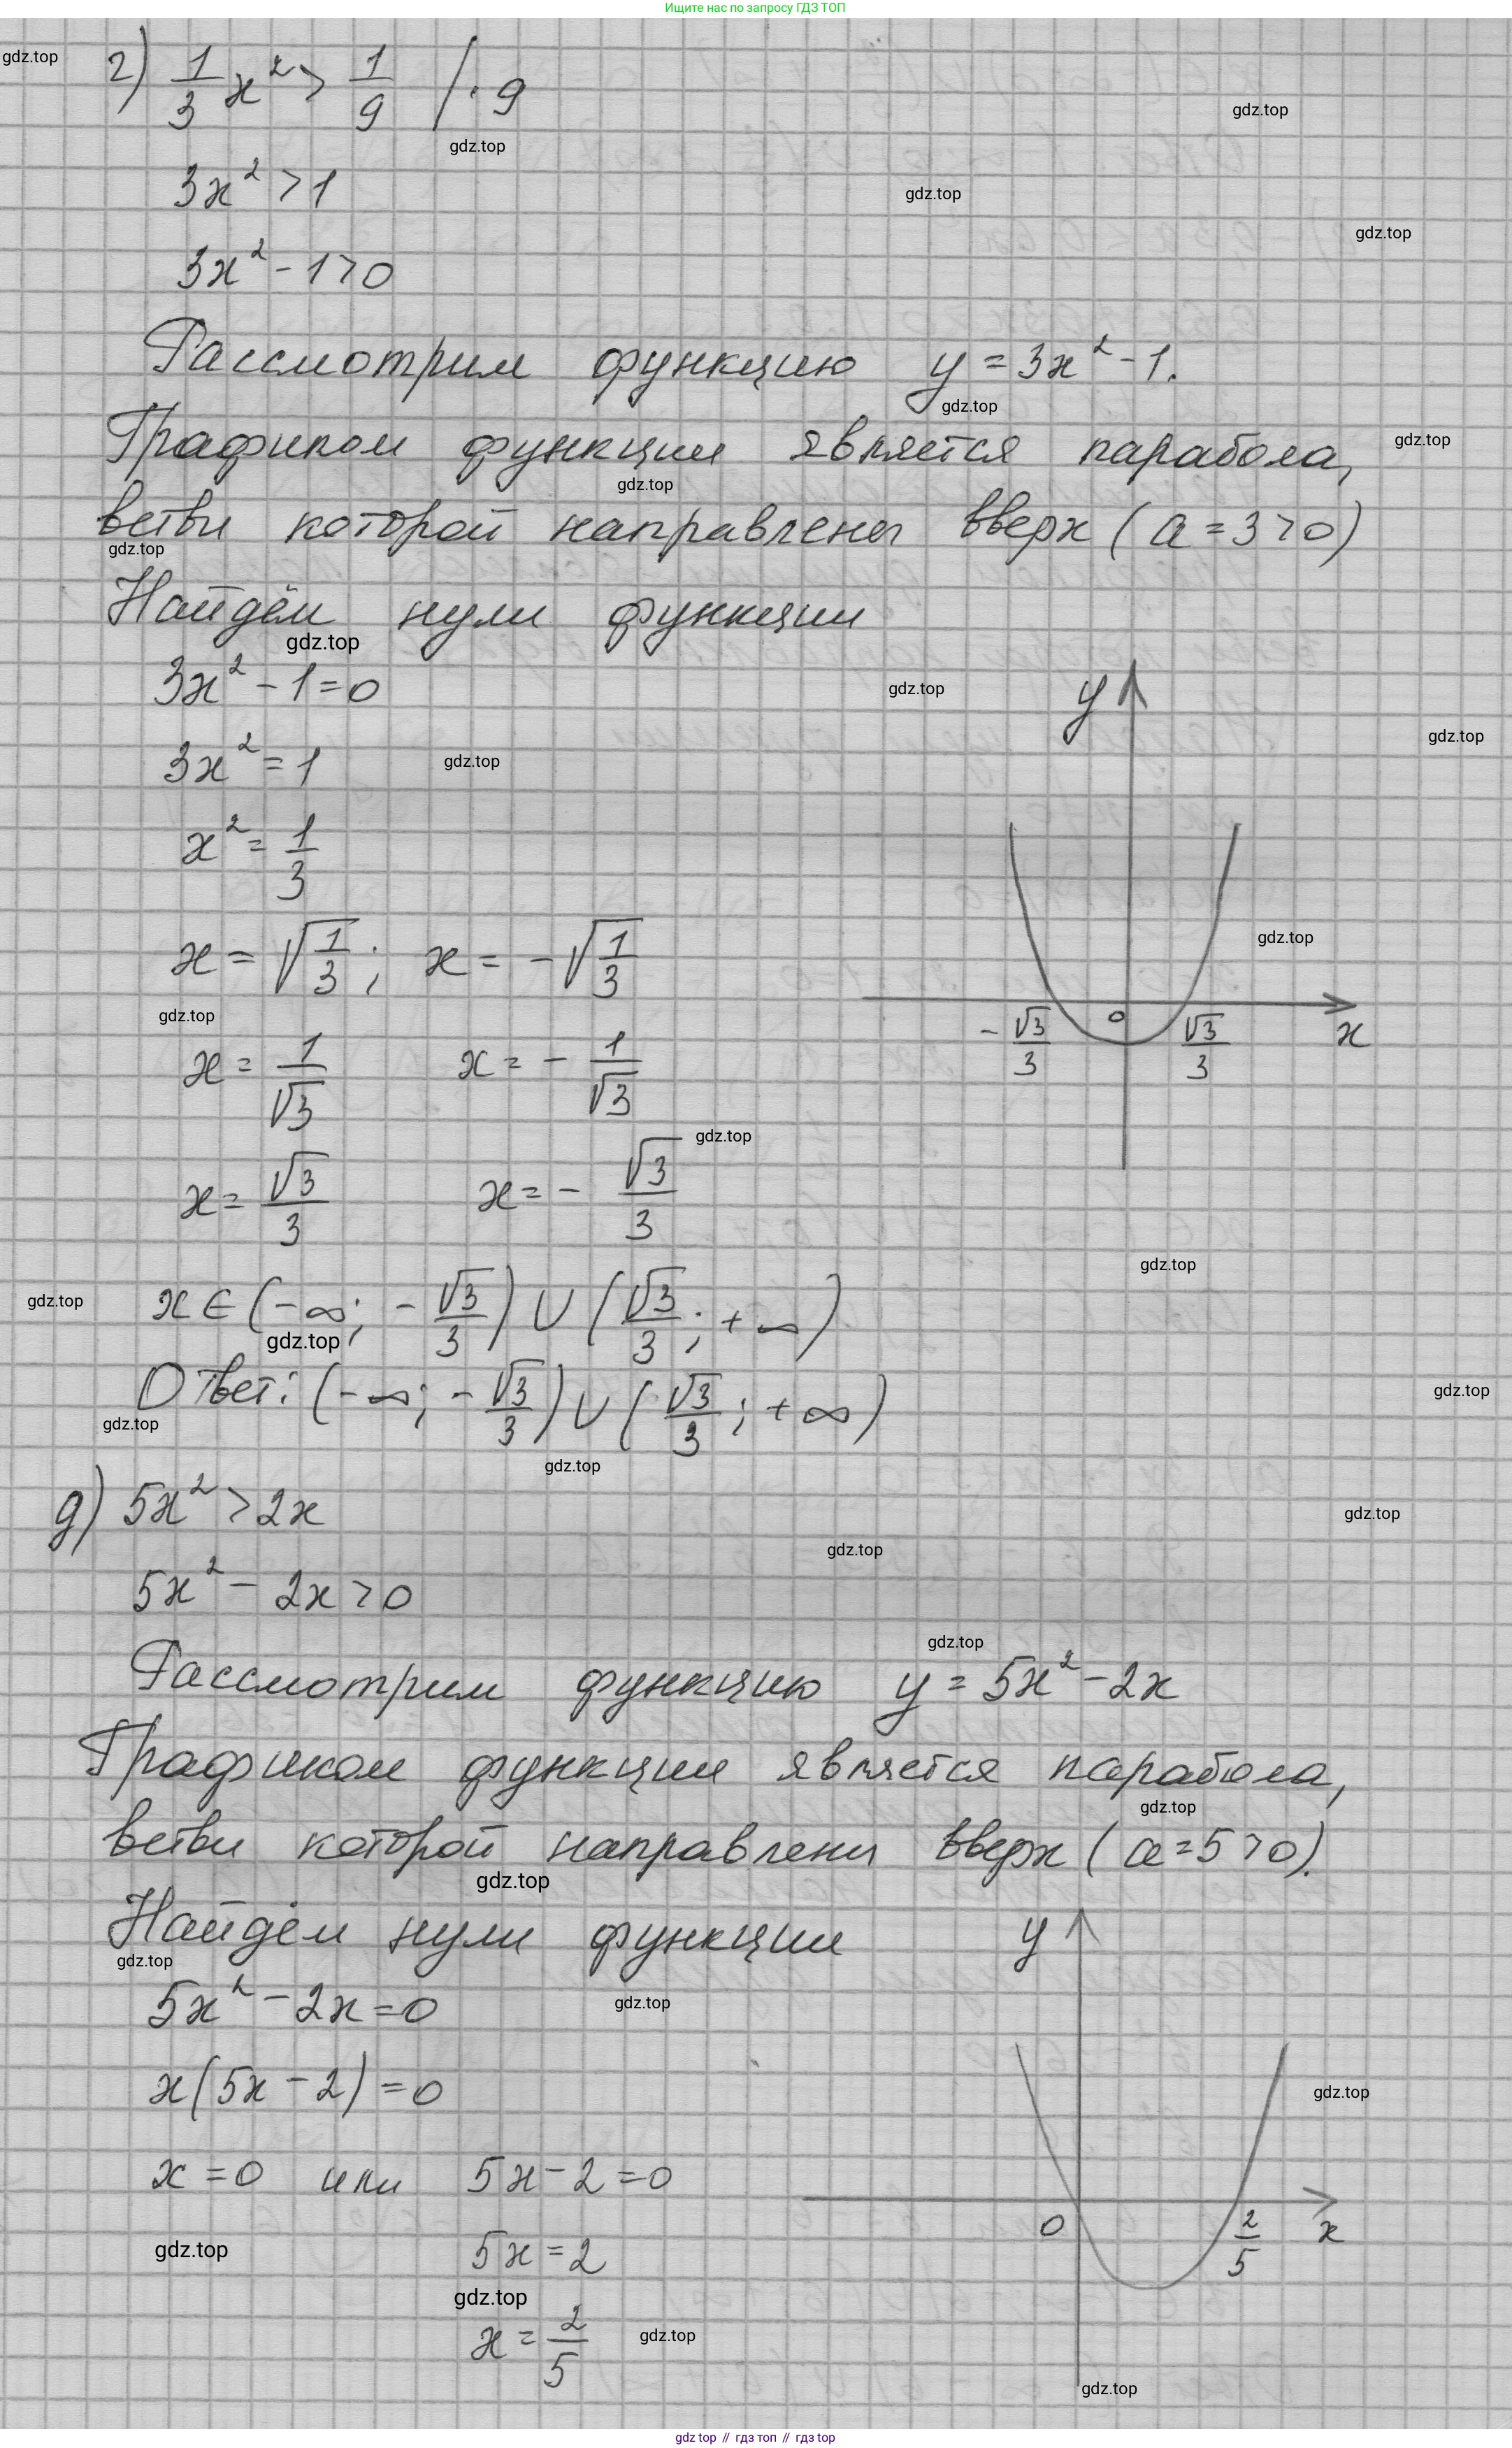 Ищите нас по запросу ГДЗ ТОП
г) 1/3 x² > 1/9 | · 9
3x² > 1
3x² - 1 > 0
Рассмотрим функцию y = 3x² - 1.
Графиком функции является парабола,
ветви которой направлены вверх (a = 3 > 0)
Найдём нули функции
3x² - 1 = 0
3x² = 1
x² = 1/3
x = √(1/3); x = -√(1/3)
x = 1/√3 x = - 1/√3
x = √3/3 x = - √3/3
y
-√3/3 0 √3/3 x
x ∈ (-∞; -√3/3) ∪ (√3/3; +∞)
Ответ: (-∞; -√3/3) ∪ (√3/3; +∞)
д) 5x² > 2x
5x² - 2x > 0
Рассмотрим функцию y = 5x² - 2x
Графиком функции является парабола,
ветви которой направлены вверх (a = 5 > 0).
Найдём нули функции
5x² - 2x = 0
x(5x - 2) = 0
x = 0 или 5x - 2 = 0
5x = 2
x = 2/5
y
0 2/5 x
gdz.top // гдз топ // гдз.top